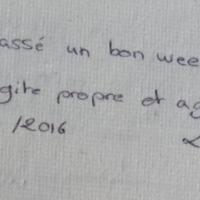 assé un bon wee
gite propre et ag
/2016